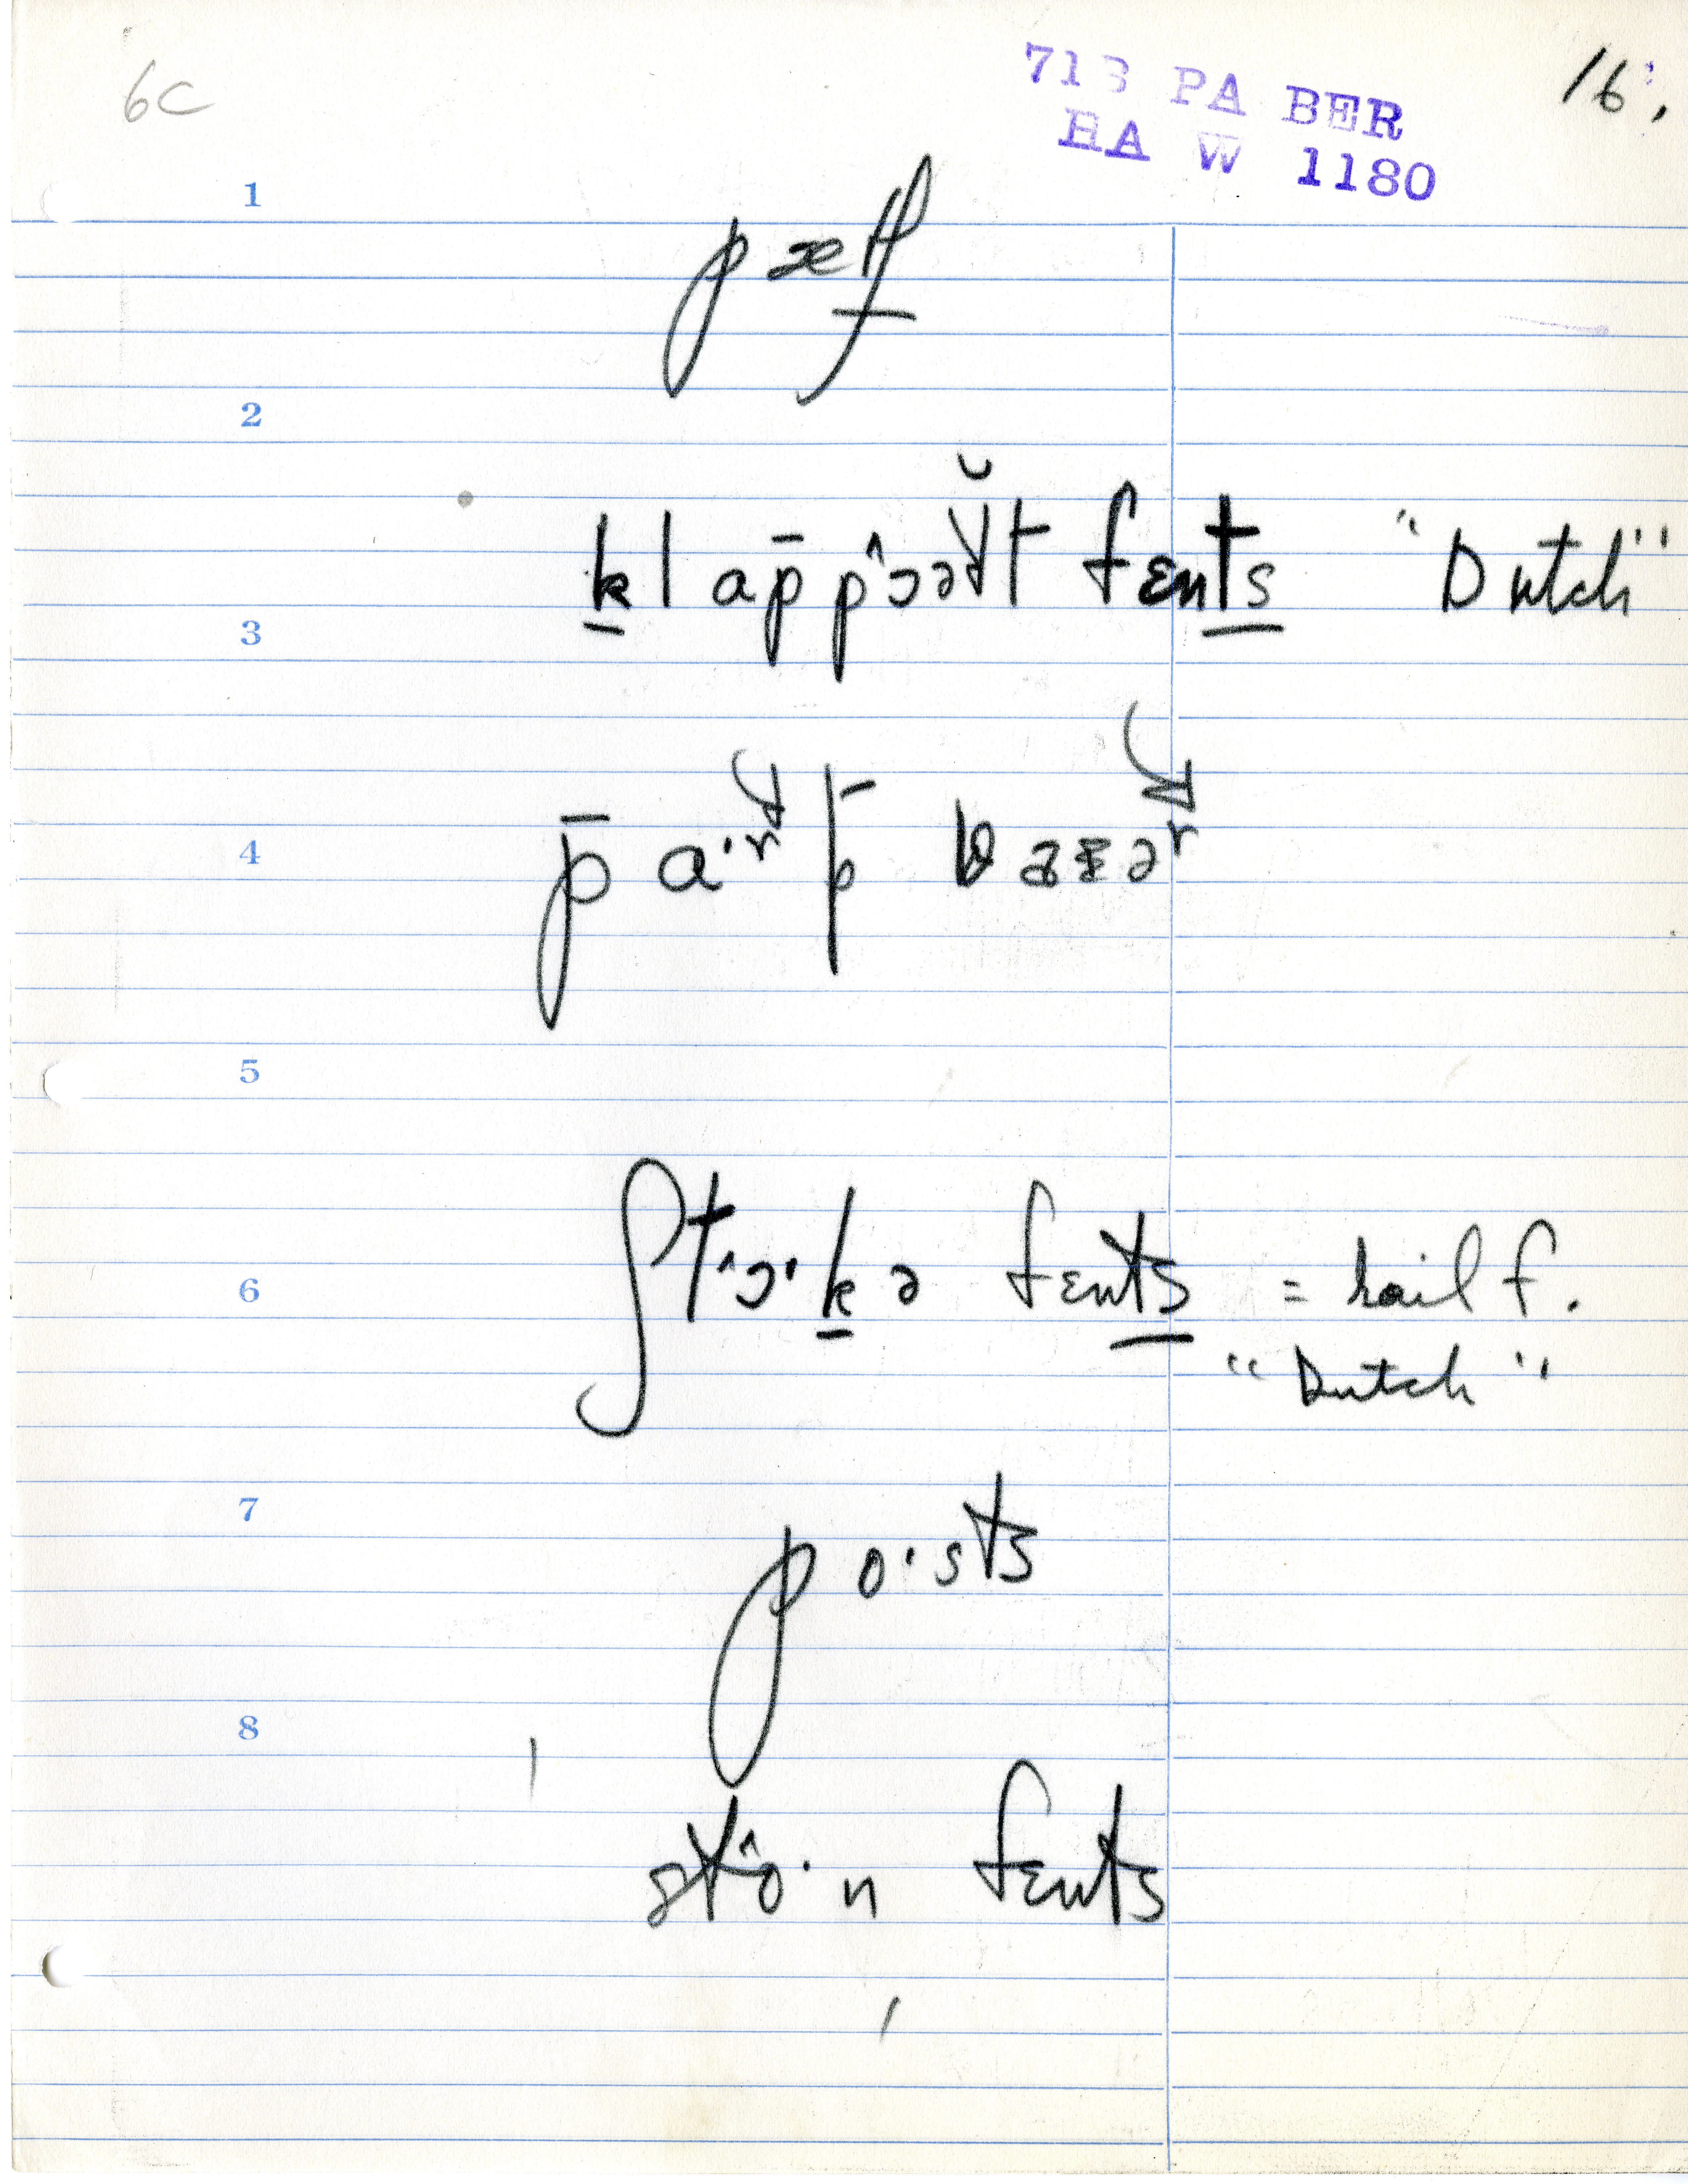 6c
713 PA BER
HA W 1180
16.
1
2
k̲lap̄p˄ɔəɤ̆t fɛnt̲s̲ "Dutch"
3
4
5
ʃt˄ɔ·k̲ə fɛnt̲s̲ = rail f.
6
"Dutch"
7
po·sts
8
st˄o·n fɛnts